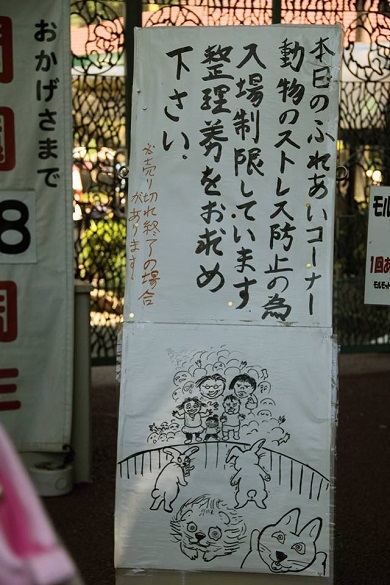 本日のふれあいコーナー
動物のストレス防止の為
入場制限しています
整理券をお求め
下さい.
※売り切れ終了の場合
があります
おかげさまで
8
周
年
モル
1回
モルモット